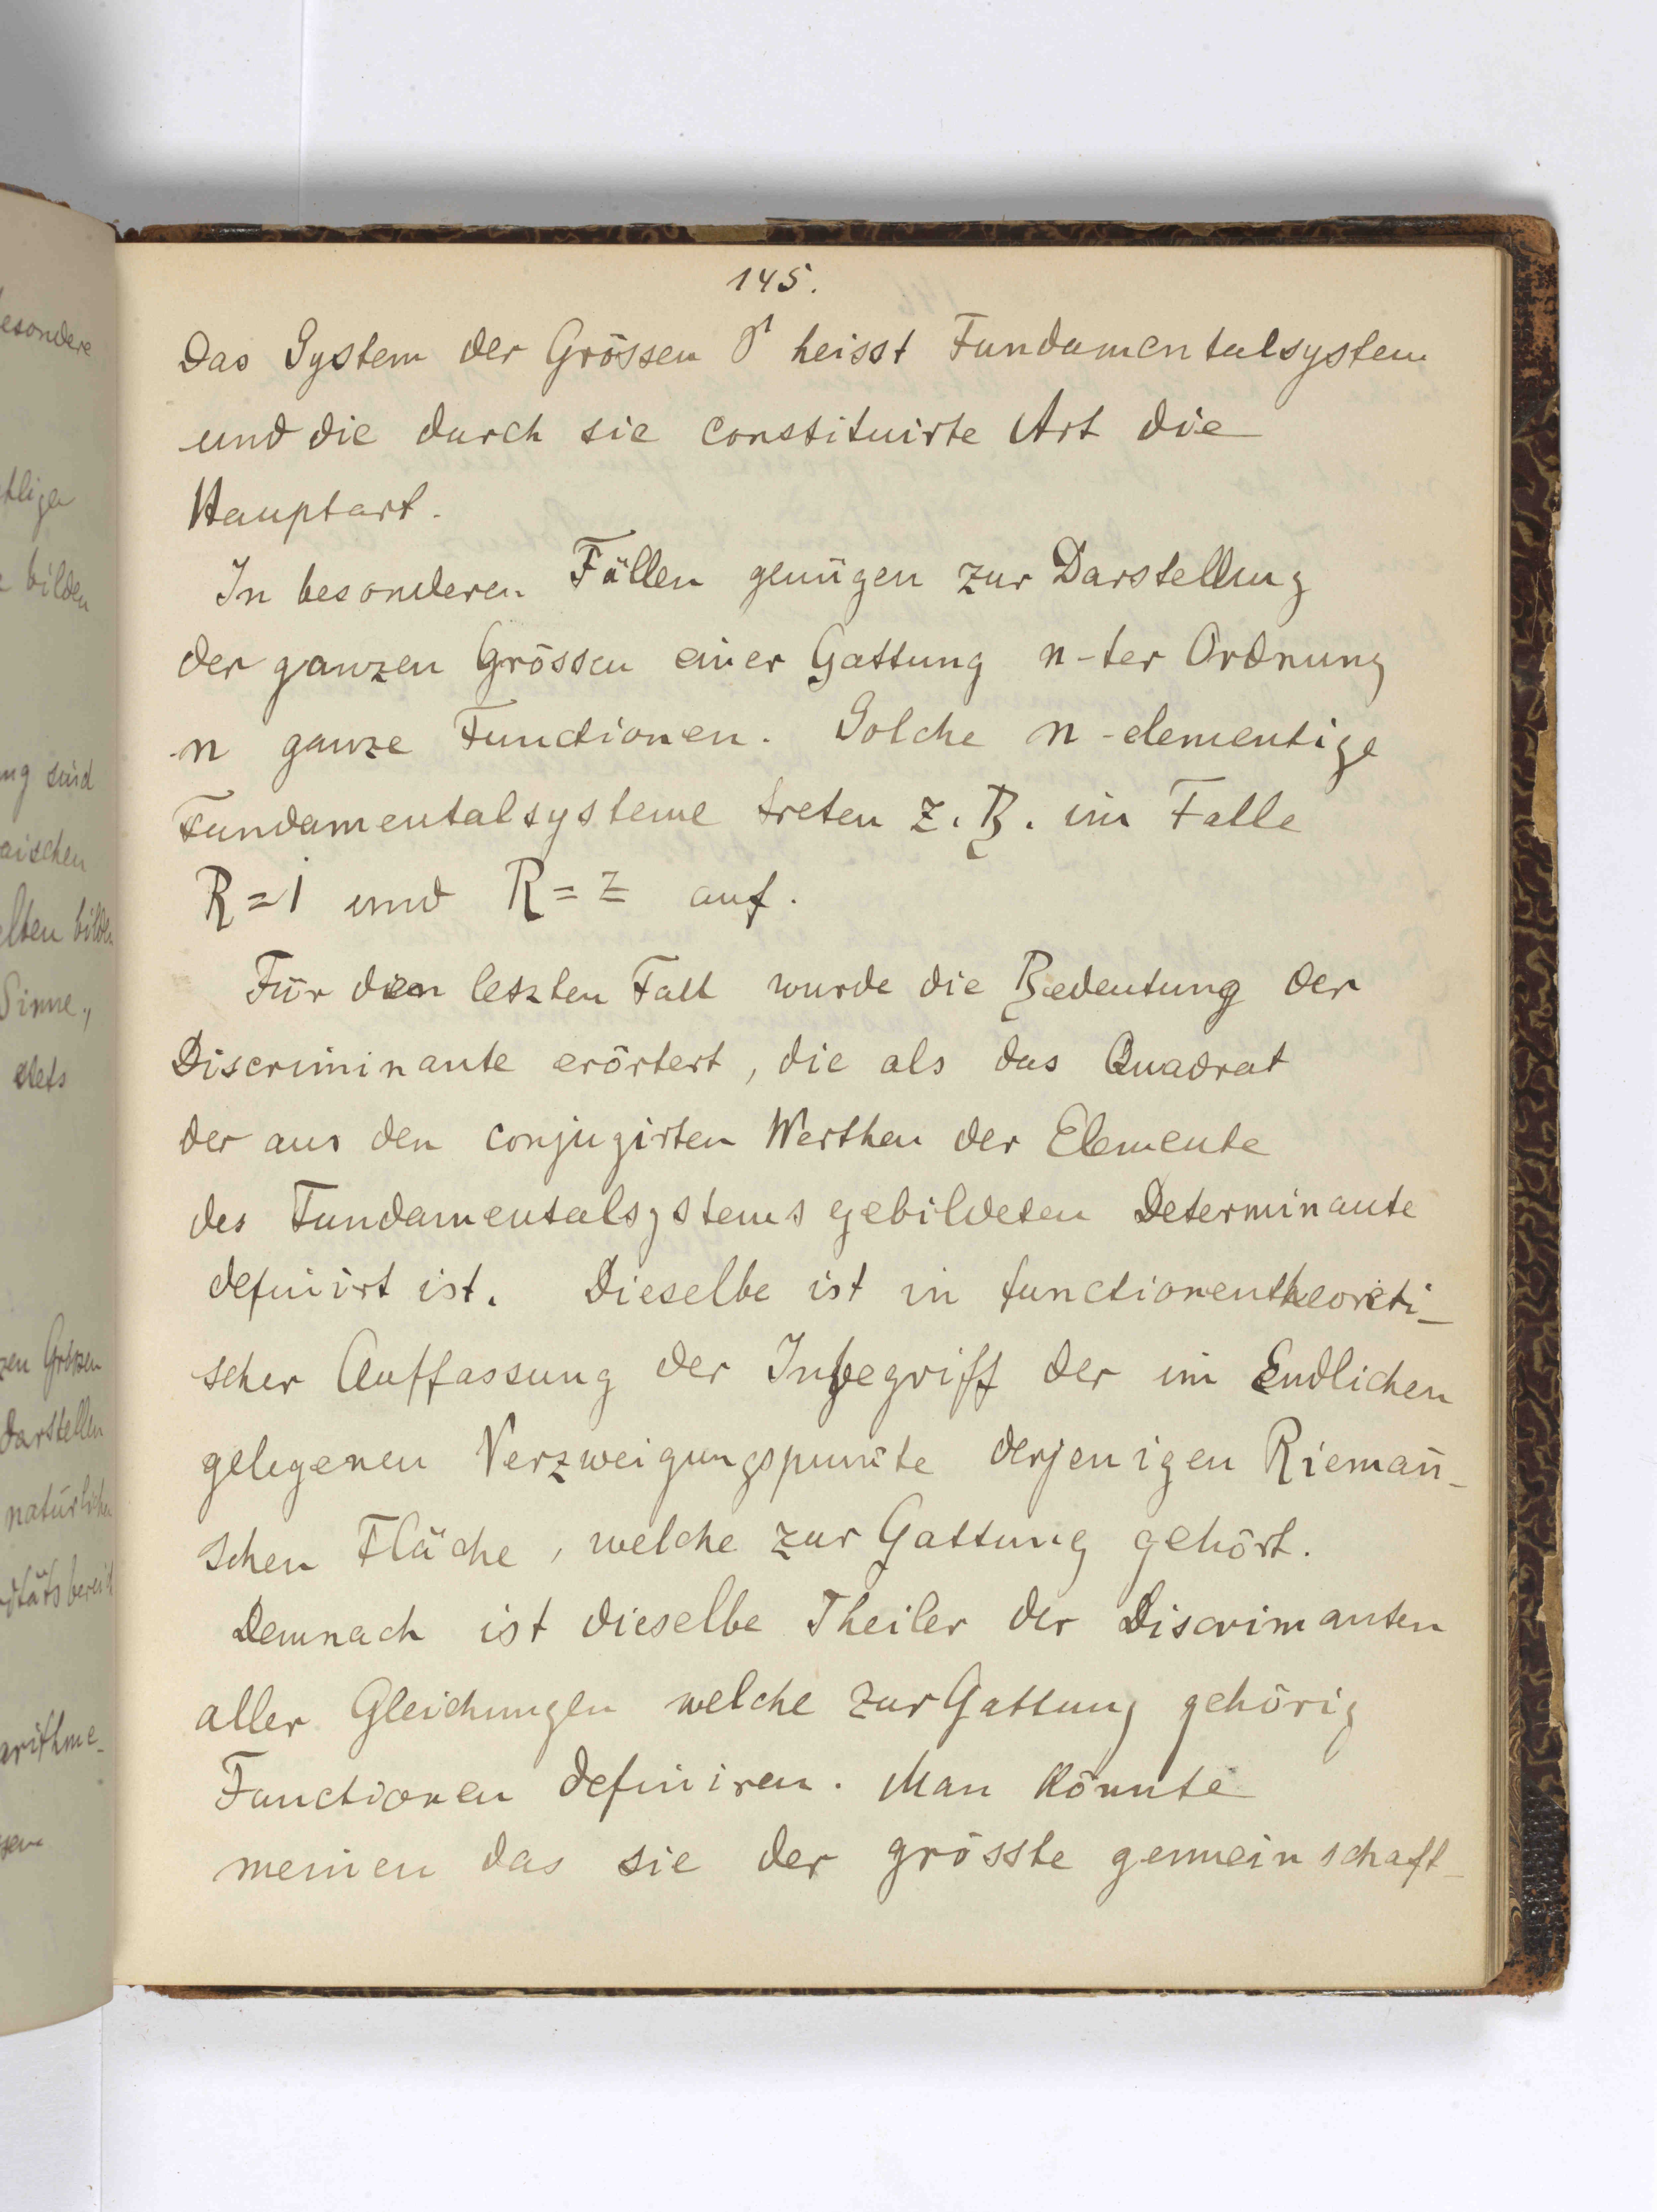 145.
Das System der Grössen heisst Fundamentalsystem
und die durch sie constituirte Art die
Hauptart.
In besonderen Fällen genügen zur Darstellung
der ganzen Grössen einer Gattung n-ter Ordnung
n ganze Functionen. Solche n-elementige
Fundamentalsysteme treten z. B. im Falle
R=1 und R=z auf.
Für den letzten Fall wurde die Bedeutung der
Discriminante erörtert, die als das Quadrat
der aus den conjugirten Werthen der Elemente
des Fundamentalsystems gebildeten Determinante
definirt ist. Dieselbe ist in functionentheoreti-
scher Auffassung der Inbegriff der im Endlichen
gelegenen Verzweigungspunkte derjenigen Riemañ-
schen Fläche, welche zur Gattung gehört.
Demnach ist dieselbe Theiler der Discrimanten
aller Gleichungen welche zur Gattung gehörig
Functionen definiren. Man könnte
meinen das sie der grösste gemeinschaft-
esondere
bilden
ng sind
aischen
elten bilden
Sinne,
stets
zen Grössen
darstellen
natürlichen
arithme-